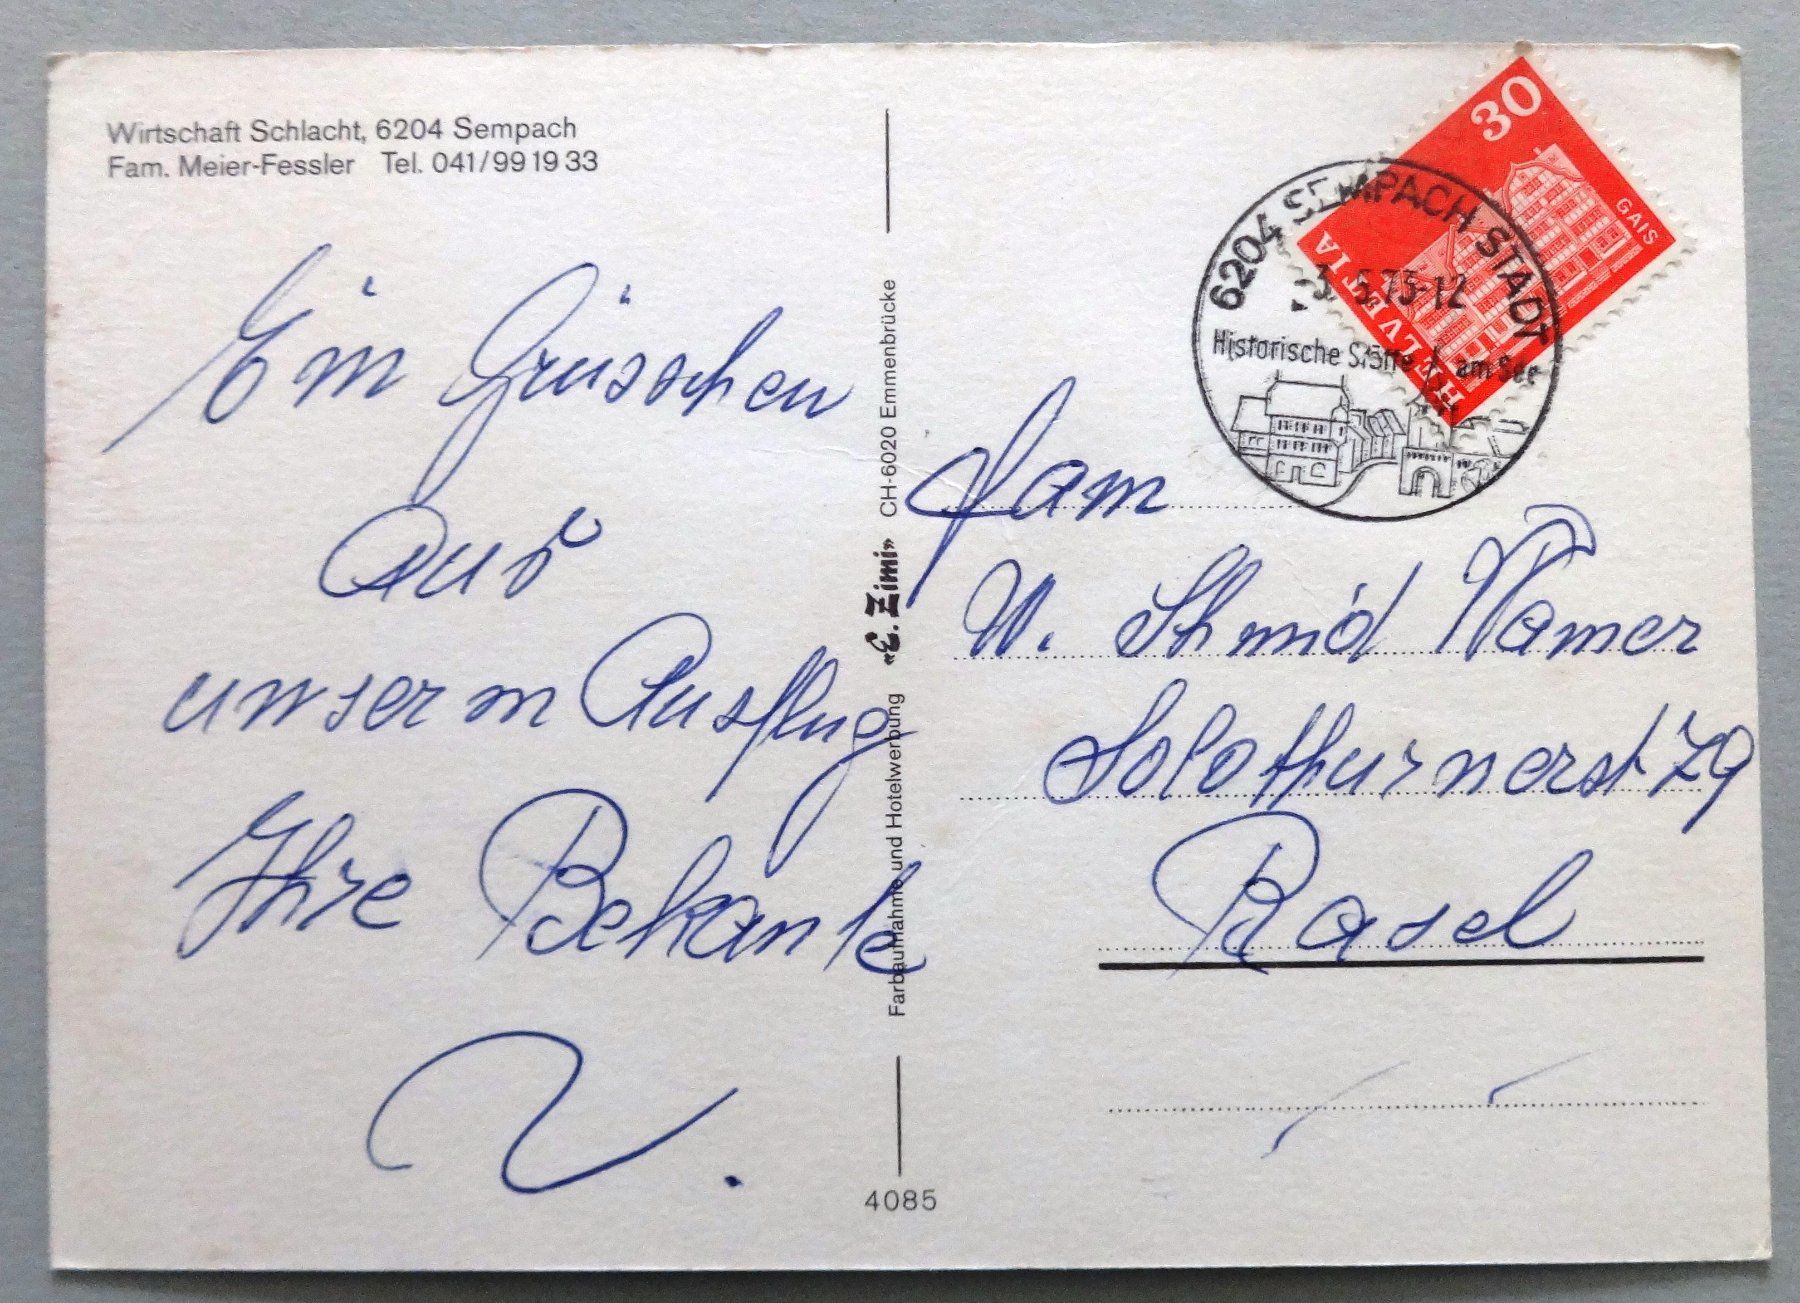 Wirtschaft Schlacht, 6204 Sempach
Fam. Meier-Fessler Tel. 041/99 19 33
Ein Grüsschen
aus
unserm Ausflug
Ihre Bekante
Farbaufnahme und Hotelwerbung «E. Zimi» CH-6020 Emmenbrücke
4085
30
HELVETIA
GAIS
6204 SEMPACH STADT
3.5.73-12
Historische Stätte am See
Fam
W. Shmid
Solothurnerst. 79
Basel